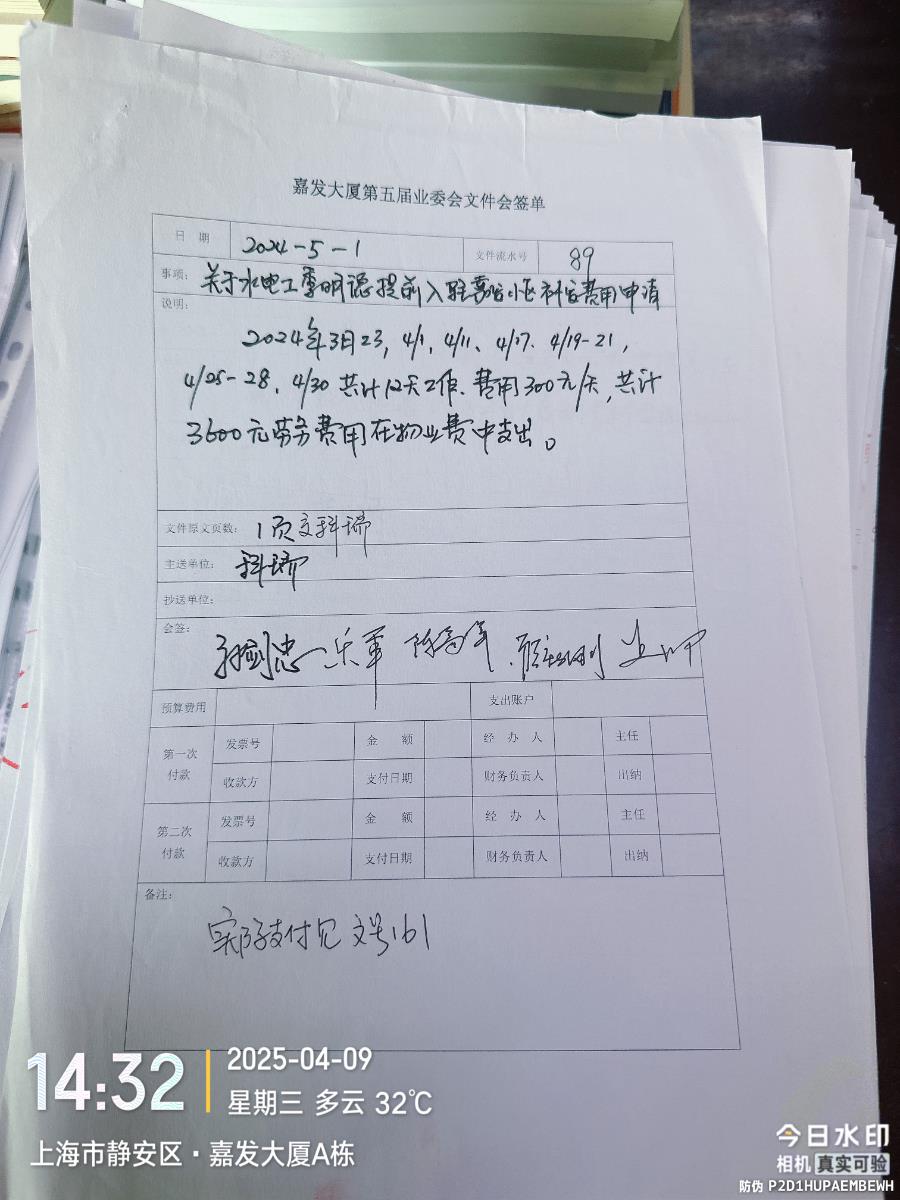 嘉发大厦第五届业委会文件会签单
日 期 2024-5-1 文件流水号 89
事项: 关于水电工季明德提前入驻嘉发小区社区费用申请
说明:
2024年3月23, 4/1, 4/11、4/17. 4/19-21,
4/25-28. 4/30 共计12天工作. 费用300元/天, 共计
3600元劳务费用在物业费中支出。
文件原文页数: 1页交科瑞
主送单位: 科瑞
抄送单位:
会签:
预算费用 支出账户
第一次付款 发票号 金 额 经 办 人 主任
收款方 支付日期 财务负责人 出纳
第二次付款 发票号 金 额 经 办 人 主任
收款方 支付日期 财务负责人 出纳
备注:
实际支付见 文号161
14:32
2025-04-09
星期三 多云 32℃
上海市静安区·嘉发大厦A栋
今日水印
相机 真实可验
防伪 P2D1HUPAEMBEWH